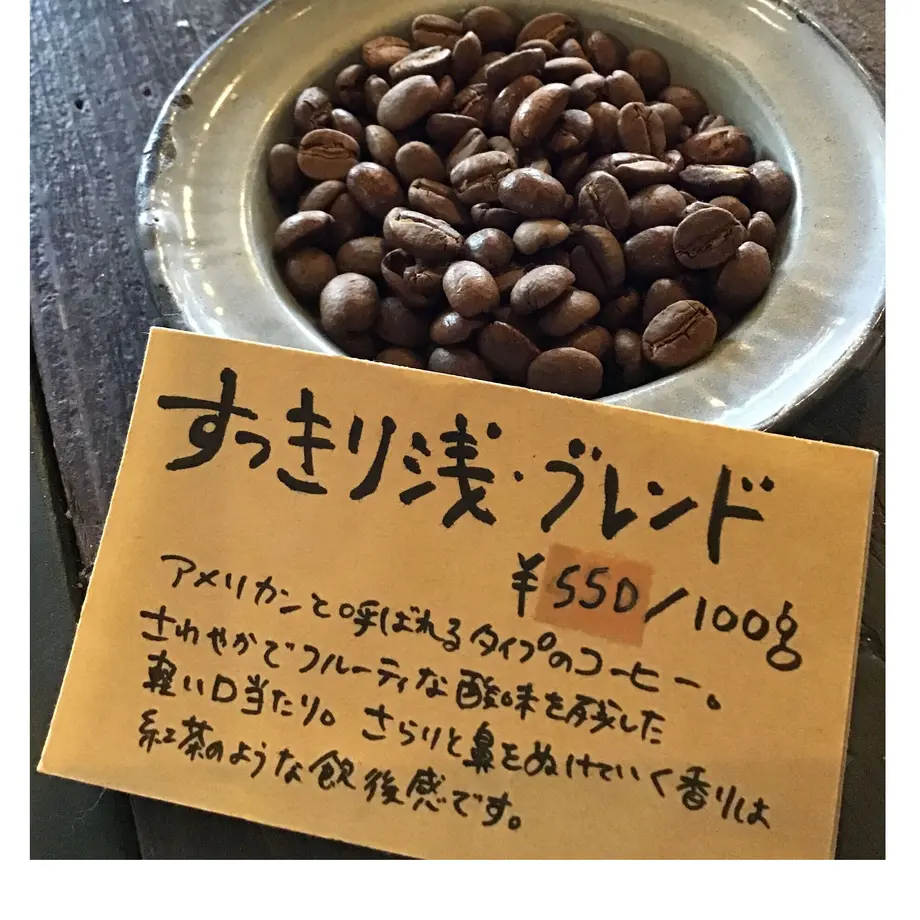 すっきり浅・ブレンド
¥550/100g
アメリカンと呼ばれるタイプのコーヒー。
さわやかでフルーティな酸味を残した
軽い口当たり。さらりと鼻をぬけていく香りは
紅茶のような飲後感です。